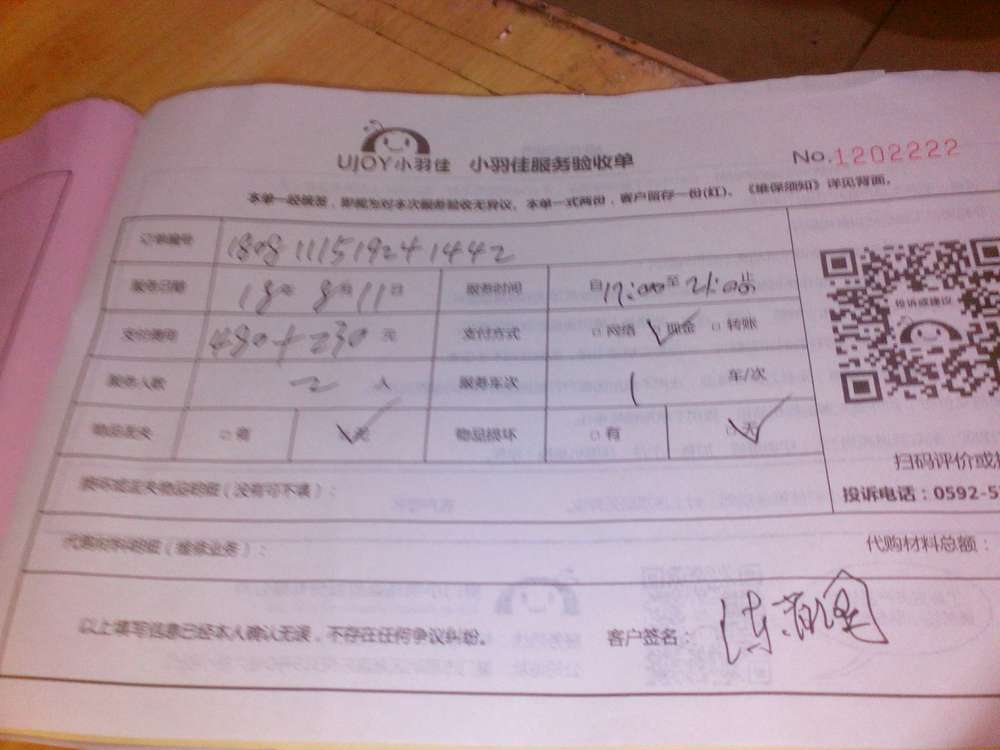 UJOY小羽佳 小羽佳服务验收单 No.1202222
本单一经填签，即视为对本次服务验收无异议。本单一式两份，客户留存一份(红)。《维保须知》详见背面。
订单编号 180811151924 1442
服务日期 18年 8月11日 服务时间 自17:00至21:00止
支付费用 480+230 元 支付方式 □网络 □现金 □转账
服务人数 2 人 服务车次 1 车/次
物品丢失 □有 □无 物品损坏 □有 □无
投诉或建议
扫码评价或
损坏或丢失物品明细（没有可不填）：
投诉电话：0592-5
代购材料明细（维修业务）：
代购材料总额：
以上填写信息已经本人确认无误，不存在任何争议纠纷。 客户签名：